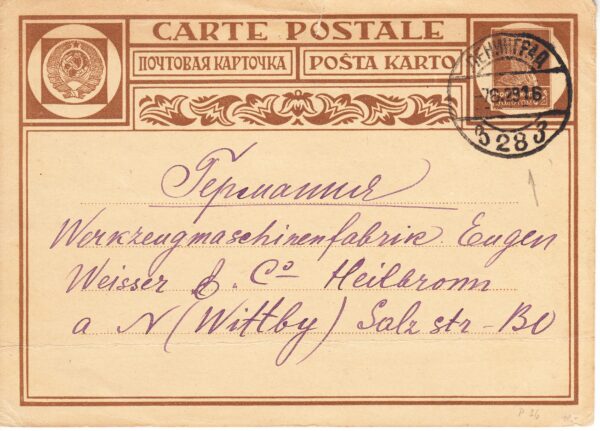 CARTE POSTALE
ПОЧТОВАЯ КАРТОЧКА
POŜTA KARTO
ЛЕНИНГРАД
283
Германия
Werkzeugmaschinenfabrik Eugen
Weisser & Co Heilbronn
a N (Wittby) Salzstr-